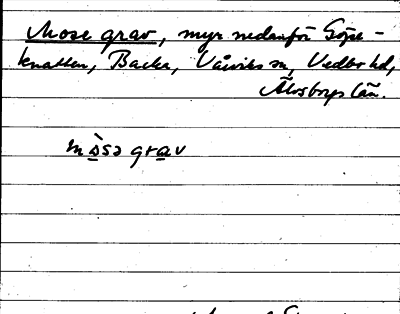 Mose grav, myr nedanför Göje-
knatten, Backa, Vårviks sn, Vedbo hd,
Älvsborgs län.
mòsə grav